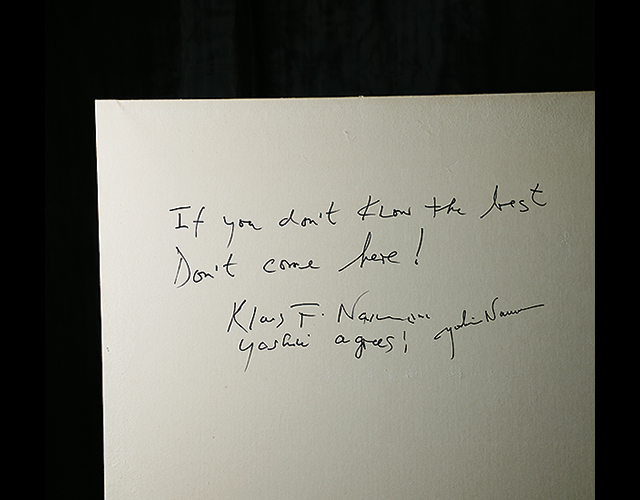 If you don't know the best
Don't come here!
Klaus F. Naumann
Yoshii agrees!